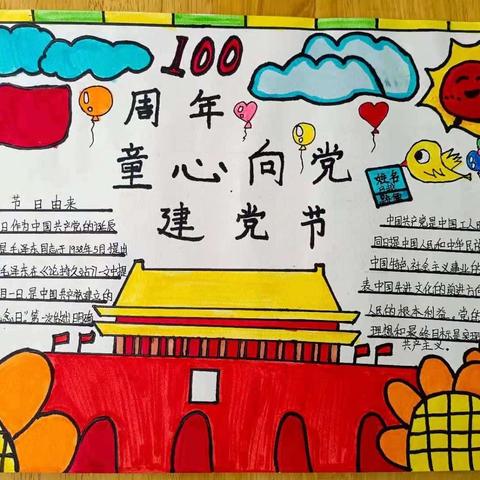 100
周年
童心向党
建党节
姓名
节日由来
日作为中国共产党的诞辰
是毛泽东同志于1938年5月提出
毛泽东在《论持久战》一文中提
月一日,是中国共产党建立的
念日”第一次
中国共产党是中国工人
同时是中国人民和中华民
中国特色社会主义事业的
表中国先进文化的前进方向
人民的根本利益。党的
理想和最终目标是实现
共产主义。